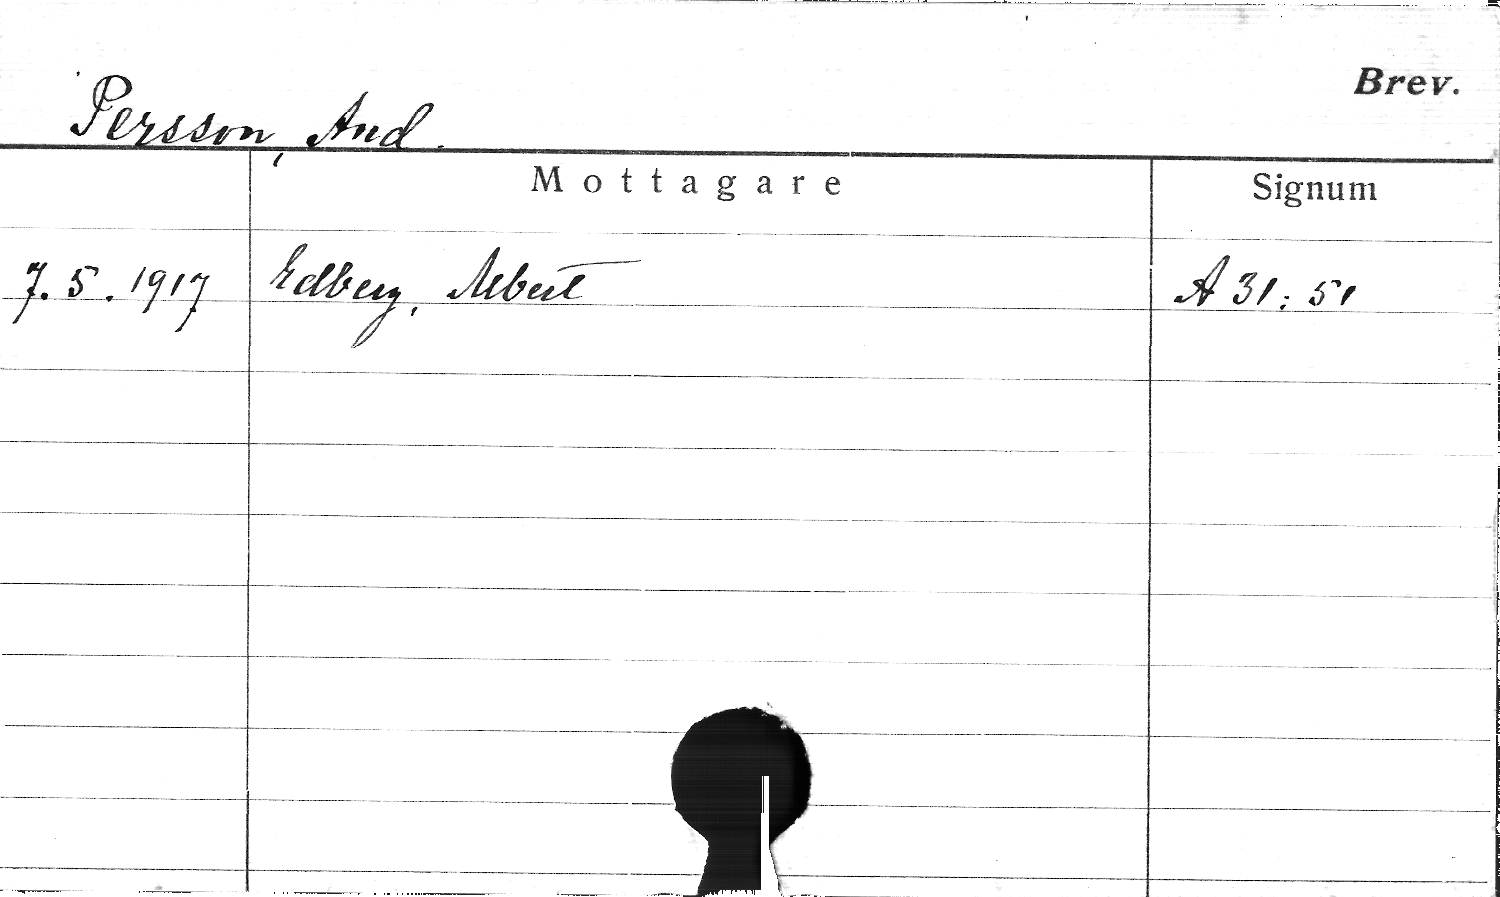 Brev.
Persson, And.
Mottagare Signum
7.5.1917 Edberg, Albert A 31: 51